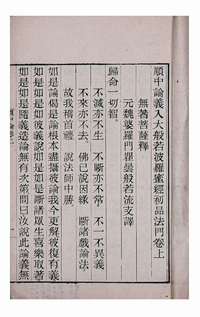 順中論義入大般若波羅蜜經初品法門卷上
無著菩薩釋
元魏婆羅門瞿曇般若流支譯
歸命一切智。
不滅亦不生 不斷亦不常 不一不異義
不來亦不去 佛已說因緣 斷諸戲論法
故我稽首禮 說法師中勝
如是論偈是論根本盡攝彼論我今更解彼復有義
如是如是彼義說如是如是斷諸眾生喜樂取著
如是如是隨義造論無有次第問曰汝說此論義無